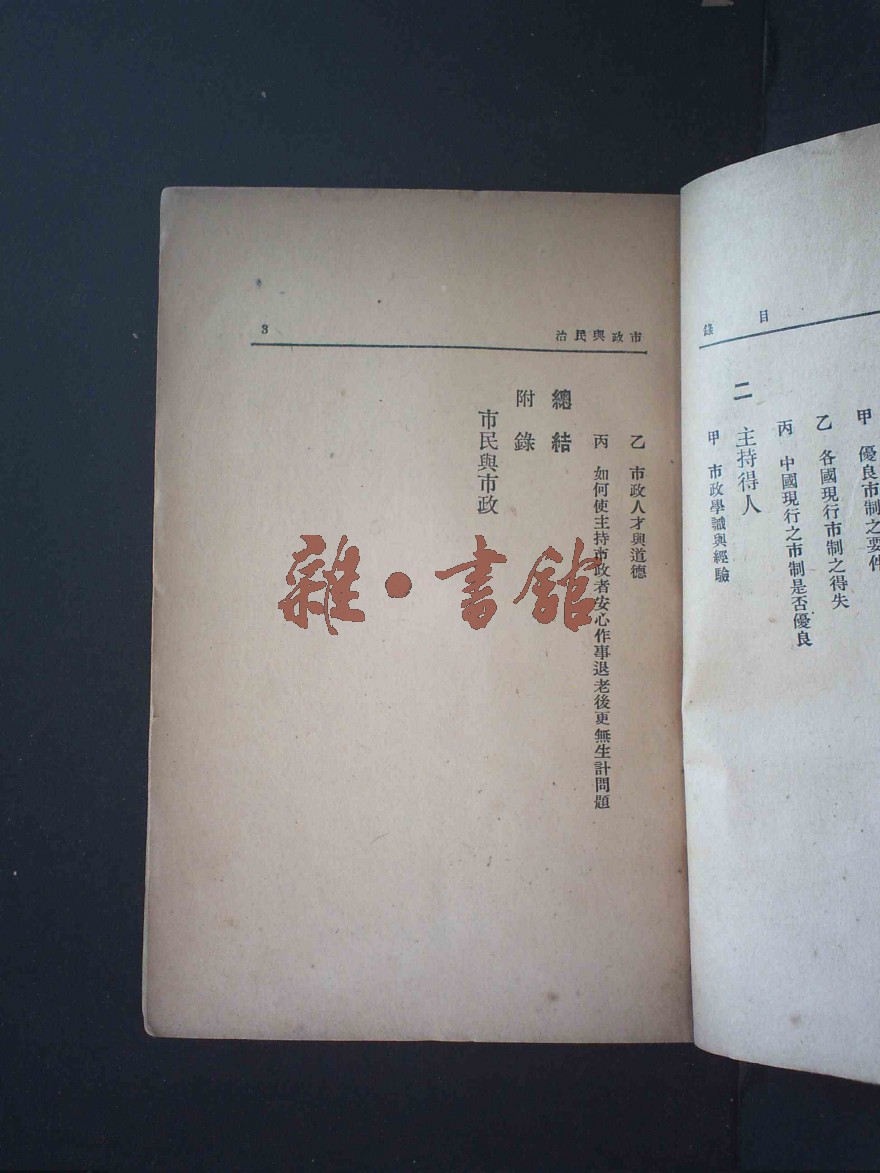 目錄
甲　優良市制之要件
乙　各國現行市制之得失
丙　中國現行之市制是否優良
二　主持得人
甲　市政學識與經驗
市政與民治
3
乙　市政人才與道德
丙　如何使主持市政者安心作事退老後更無生計問題
總結
附錄
市民與市政
雜·書館